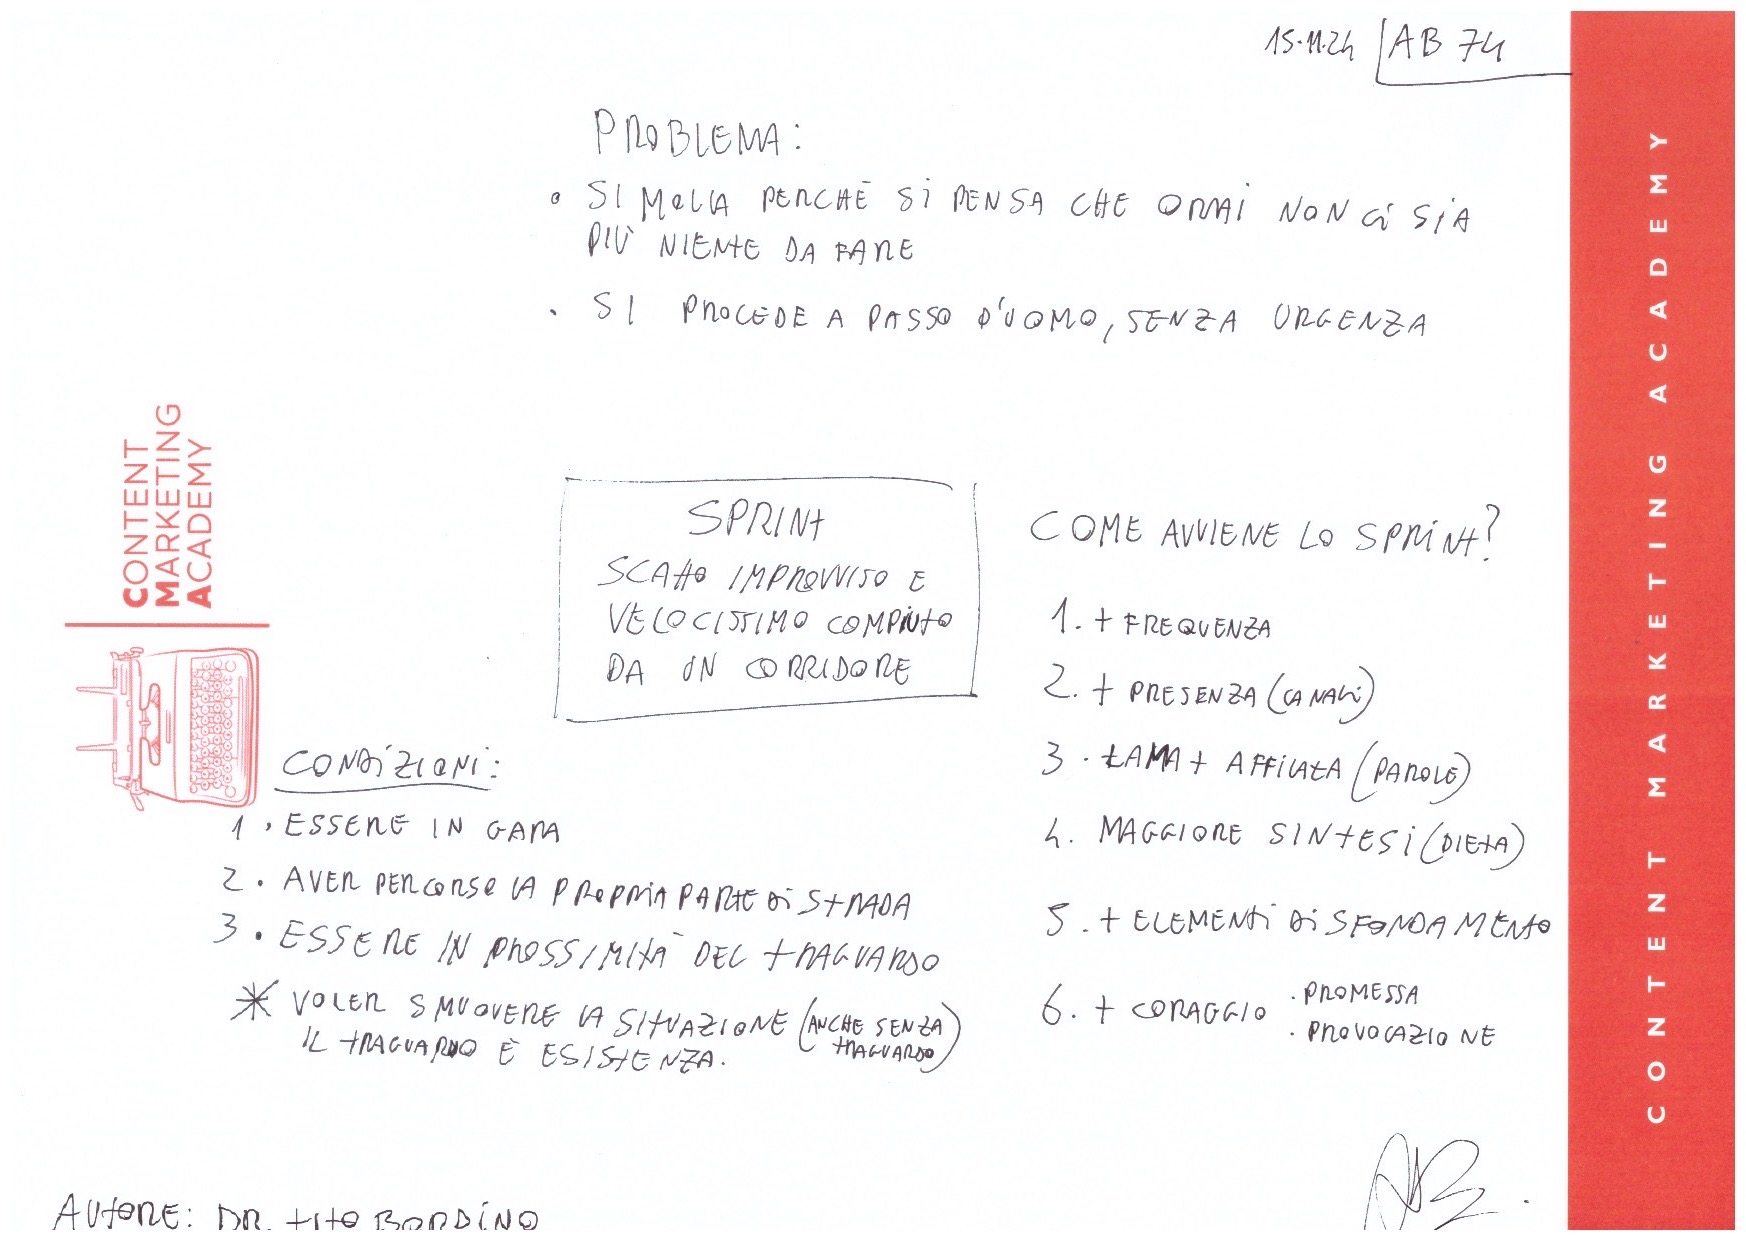 15.11.24 AB 74
PROBLEMA:
• SI MOLLA PERCHÈ SI PENSA CHE ORMAI NON CI SIA
PIÙ NIENTE DA FARE
• SI PROCEDE A PASSO D'UOMO, SENZA URGENZA
CONTENT
MARKETING
ACADEMY
SPRINT
SCATTO IMPROVVISO E
VELOCISSIMO COMPIUTO
DA UN CORRIDORE
CONDIZIONI:
1. ESSERE IN GARA
2. AVER PERCORSO LA PROPRIA PARTE DI STRADA
3. ESSERE IN PROSSIMITÀ DEL TRAGUARDO
* VOLER SMUOVERE LA SITUAZIONE (ANCHE SENZA
TRAGUARDO)
IL TRAGUARDO È ESISTENZA.
COME AVVIENE LO SPRINT?
1. + FREQUENZA
2. + PRESENZA (CANALI)
3. LAMA + AFFILATA (PAROLE)
4. MAGGIORE SINTESI (DIETA)
5. + ELEMENTI DI SFONDAMENTO
6. + CORAGGIO
. PROMESSA
. PROVOCAZIONE
AUTORE: DR. TITO BORDINO
CONTENT MARKETING ACADEMY